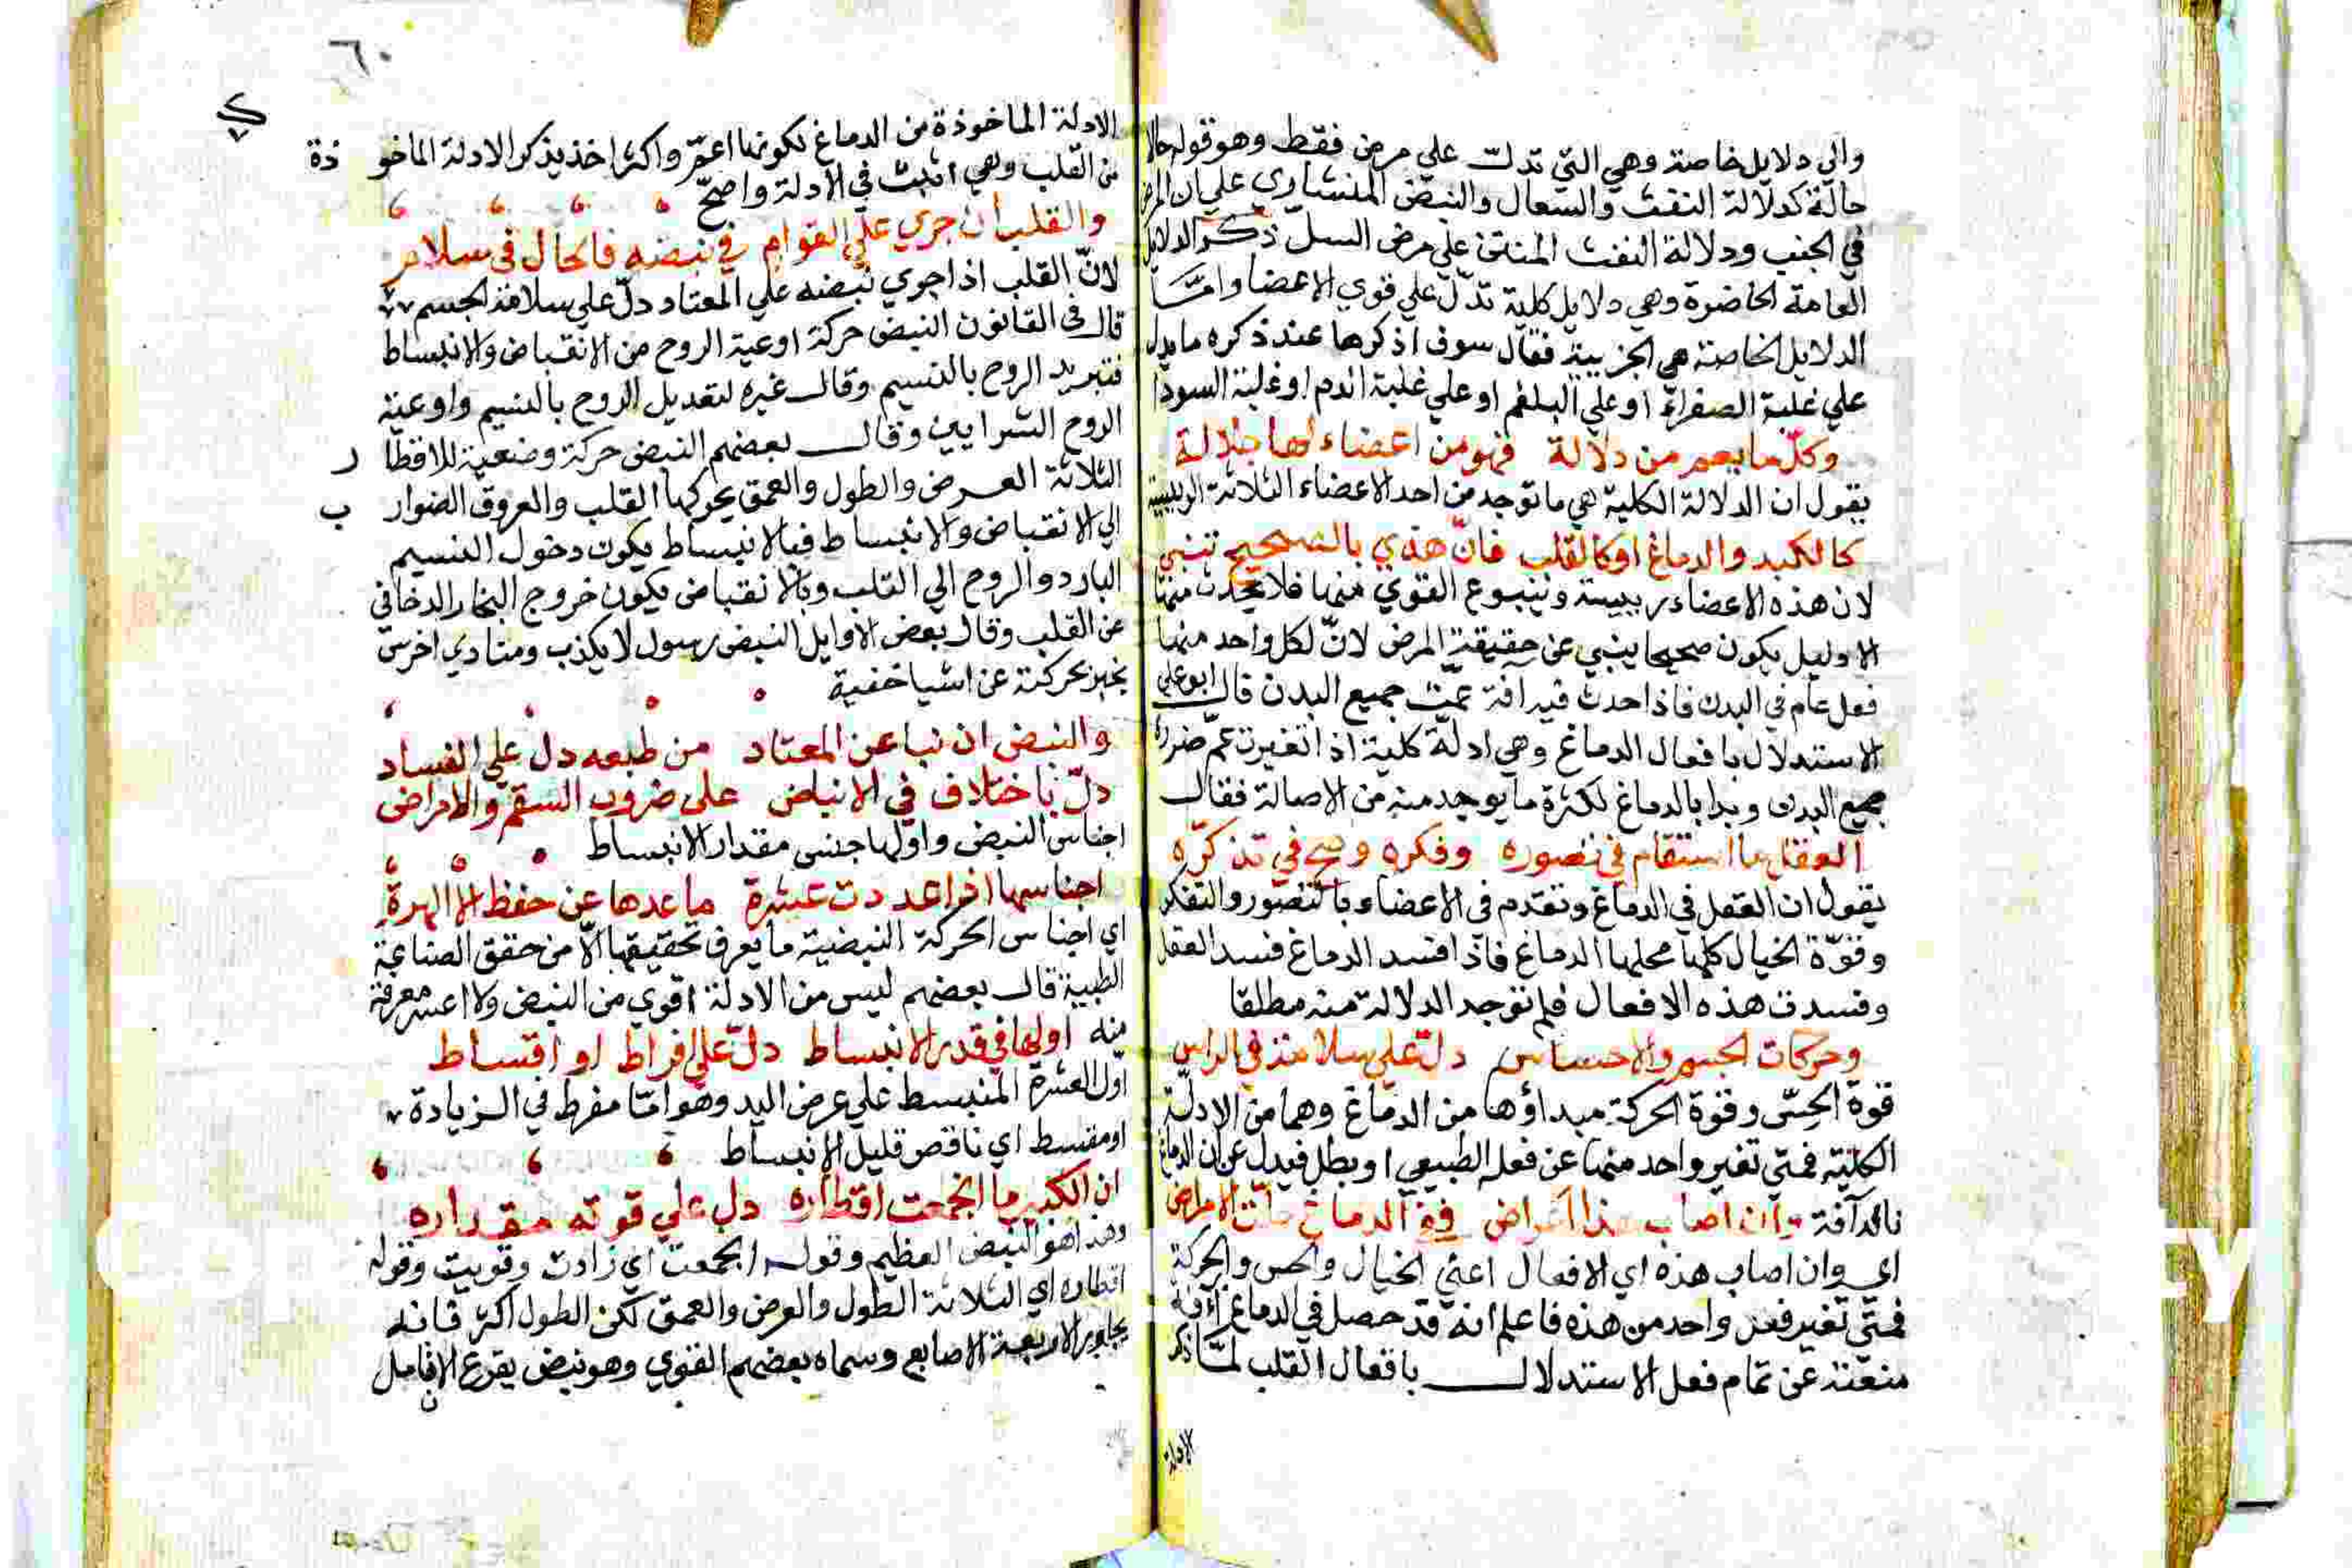 والي دلايل خاصة وهي التي تدل علي مرض فقط وهو قوله حالا
حالة كدلالة النفث والسعال والنبض المنشاري علي ان المرض
في الجنب ودلالة النفث المنتن علي مرض السل ذكر الدلايل
العامة الحاضرة وهي دلايل كلية تدل علي قوي الاعضا وامّا
الدلايل الخاصة هي الجزيية فقال سوف اذكرها عند ذكره ما يدل
علي غلبة الصفراء او علي البلغم او علي غلبة الدم او غلبة السودا
وكل ما يعم من دلالة فهو من اعضاء لها جلالة
يقول ان الدلالة الكلية هي ما توجد من احد الاعضاء الثلاثة الرييسية
كالكبد والدماغ او كالقلب فانّ هذي بالصحيح تنبي
لان هذه الاعضاء رييسة وينبوع القوي منها فلا يحدث منها
الا دليل يكون صحيحا ينبي عن حقيقة المرض لانّ لكل واحد منها
فعل عام في البدن فاذا حدث فيه افة عمّت جميع البدن قال ابو علي
الاستدلال بافعال الدماغ وهي ادلّة كلية اذا تغيرت عمّ ضرره
جميع البدن وبدا بالدماغ لكثرة ما يوجد منه من الاصالة فقال
العقل ما استقام في تصوره وفكره وصح في تذكّره
يقول ان العقل في الدماغ وتقدم في الاعضاء بالتصور والتفكر
وقوّة الخيال كلها محلها الدماغ فاذا فسد الدماغ فسد العقل
وفسدت هذه الافعال فلم توجد الدلالة منه مطلقا
وحركات الجسم والاحساس دلّت علي سلامة في الراس
قوة الحسّ وقوة الحركة مبداؤها من الدماغ وهما من الادلّة
الكلية فمتي تغير واحد منهما عن فعله الطبيعي او بطل فيدل عن ان الدماغ
ناله آفة وان اصاب هذا اعراض ففي الدماغ حلّت الامراض
اي وان اصاب هذه اي الافعال اعني الخيال والحس والحركة
فمتي تغير فعل واحد من هذه فاعلم انه قد حصل في الدماغ آفة
منعته عن تمام فعل الاستدلال بافعال القلب لمّا ذكر
الادلة
٦٠
الادلة الماخوذة من الدماغ لكونها اعمّ واكثر اخذ يذكر الادلة الماخوذة
من القلب وهي اثبت في الادلة واصحّ
والقلب ان جري علي القوام في نبضه فالحال في سلام
لانّ القلب اذا جري نبضه علي المعتاد دلّ علي سلامة الجسم
قال في القانون النبض حركة اوعية الروح من الانقباض والانبساط
فتبريد الروح بالنسيم وقال غيره لتعديل الروح بالنسيم واوعية
الروح الشرايين وقال بعضهم النبض حركة وضعية للاقطار
الثلاثة العرض والطول والعمق يحركها القلب والعروق الضوارب
الي الانقباض والانبساط فبالانبساط يكون دخول النسيم
البارد والروح الي القلب وبالانقباض يكون خروج البخار الدخاني
عن القلب وقال بعض الاوايل النبض رسول لا يكذب ومنادي اخرس
يخبر بحركته عن اشيا خفية
والنبض ان نبا عن المعتاد من طبعه دل علي الفساد
دلّ باختلاف في الانباض علي ضروب السقم والامراض
اجناس النبض واولها جنس مقدار الانبساط
اجناسها اذا عددت عشرة ما عدها عن حفظ الا المهرة
اي اجناس الحركة النبضية ما يعرف تحقيقها الاّ من حقق الصناعة
الطبية قال بعضهم ليس من الادلة اقوي من النبض ولا اعسر معرفة
منه اولها في قدر الانبساط دلّ علي افراط او اقساط
اول العشرة المنبسط علي عرض اليد وهو امّا مفرط في الزيادة
او مقسط اي ناقص قليل الانبساط
ان الكبير ما انجمعت اقطاره دل علي قوته مقداره
وهذا هو النبض العظيم وقوله انجمعت اي زادت وقويت وقوله
اقطاره اي الثلاثة الطول والعرض والعمق لكن الطول اكثر فانه
يجاوز الاربعة الاصابع وسماه بعضهم القوي وهو نبض يقرع الانامل